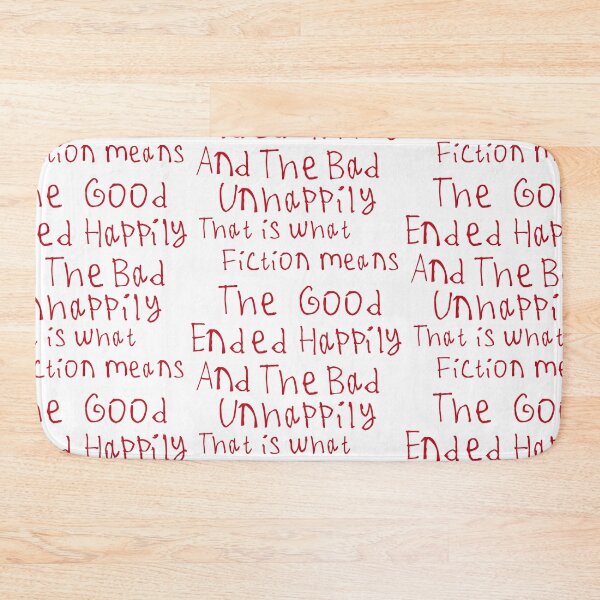 tion means
he Good
ed Happily
The Bad
nhappily
is what
ction means
he Good
ed Happily
And The Bad
Unhappily
That is what
Fiction means
The Good
Ended Happily
And The Bad
Unhappily
That is what
Fiction me
The Goo
Ended Happ
And The B
Unhappi
That is what
Fiction me
The Goo
Ended Happ